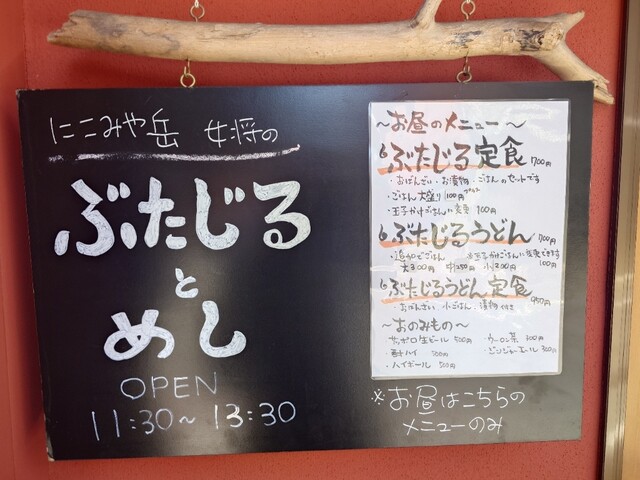 にこみや岳 女将の
ぶたじる
と
めし
OPEN
11:30~13:30
~お昼のメニュー~
ぶたじる定食 700円
・おばんざい・お漬物・ごはんのセットです
・ごはん大盛り 100円プラス
・玉子かけごはんに変更 100円
ぶたじるうどん 700円
・追加でごはん ※玉子かけごはんに変更できます
大300円 中250円 小200円 100円
ぶたじるうどん定食 950円
・おばんざい 小ごはん 漬物付き
~おのみもの~
サッポロ生ビール 500円 ・ウーロン茶 300円
酎ハイ 500円 ・ジンジャーエール 300円
ハイボール 500円
※お昼はこちらの
メニューのみ